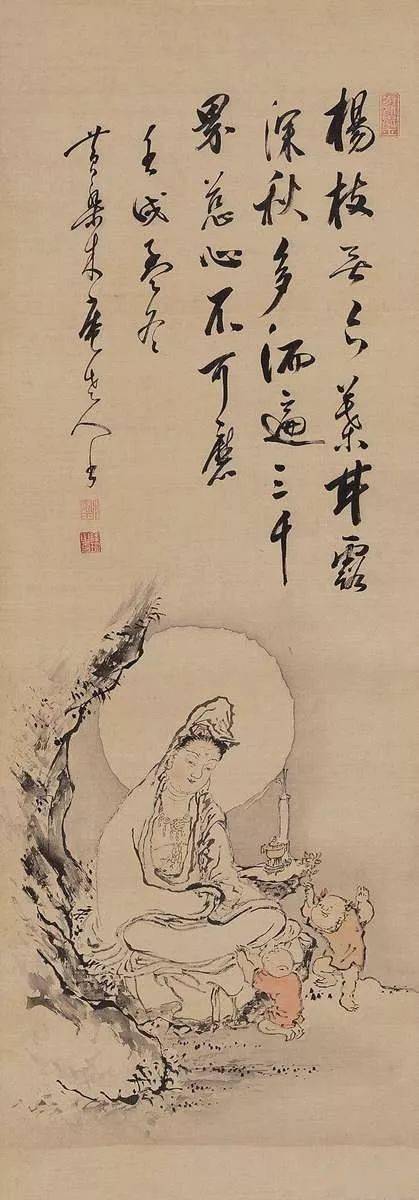 楊枝葉甘露
深秋多洒遍三千
界慈心不可
壬戌孟冬
黄檗木庵老人書